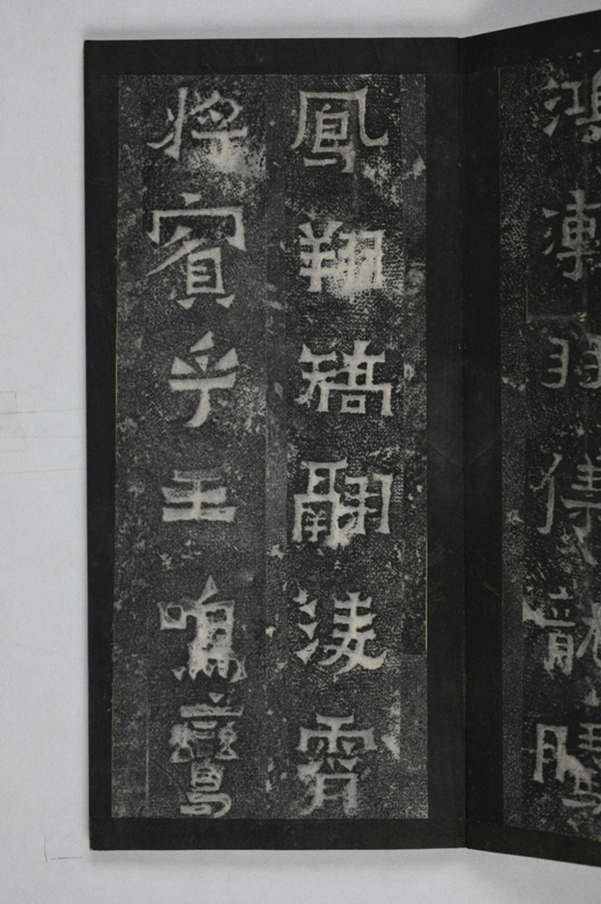 鴻漸羽儀龍騰
鳳翔矯翮淩霄
將賓乎王鳴鸞